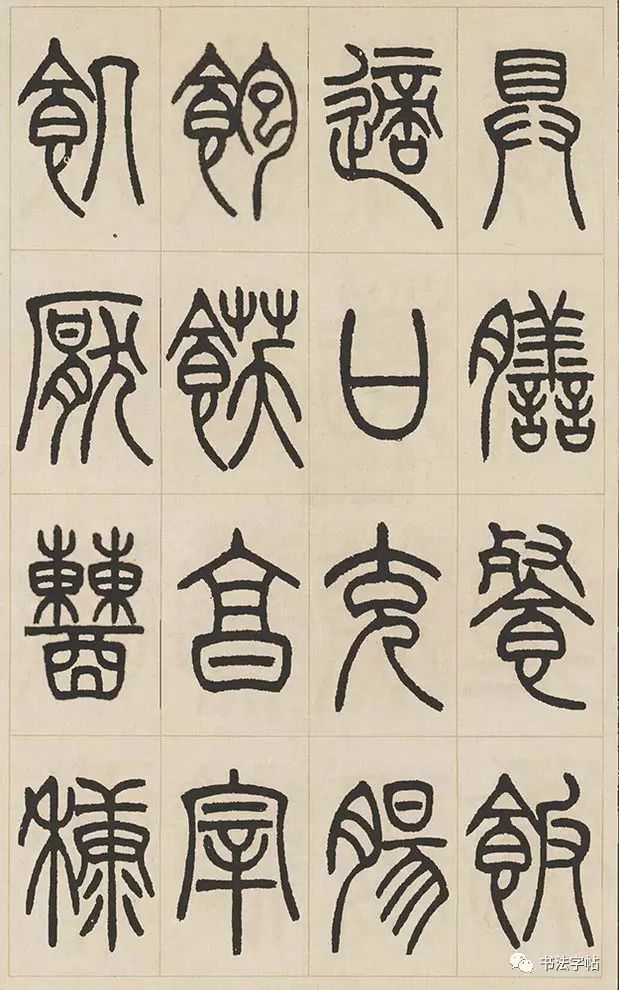 具膳餐飯
適口充腸
飽飫烹宰
飢厭糟糠
书法字帖